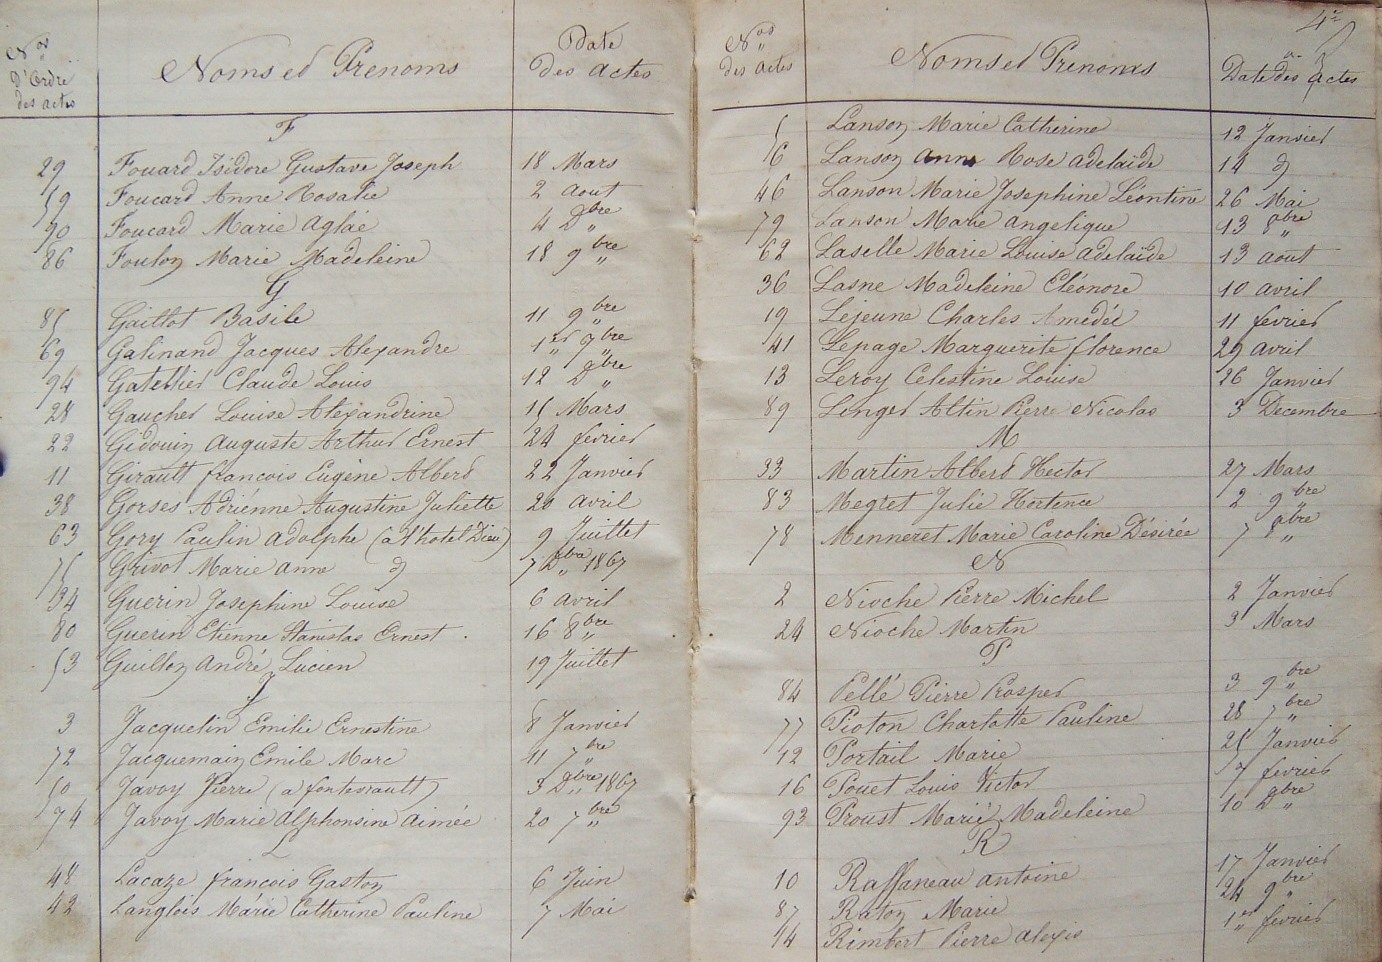 Nos D'Ordre des actes Noms et Prénoms Date des actes
F
29 Fouard Isidore Gustave Joseph 18 Mars
59 Foucard Anne Rosalie 2 aout
90 Foucard Marie Aglaé 4 Dbre
86 Foulon Marie Madeleine 18 9bre
G
85 Gaillot Basile 11 9bre
69 Galinand Jacques Alexandre 1er 7bre
94 Gatellier Claude Louis 12 Dbre
28 Gaucher Louise Alexandrine 15 Mars
22 Gidouin Auguste Arthur Ernest 24 fevrier
11 Girault françois Eugène Albert 22 Janvier
38 Gorses Adriénne Augustine Juliette 20 avril
63 Gory Paulin adolphe (à l'hotel Dieu) 9 Juillet
75 Grivot Marie anne d 7 Dbre 1867
34 Guerin Josephine Louise 6 avril
80 Guerin Etienne Stanislas Ernest 16 8bre
53 Guillon André Lucien 19 Juillet
J
3 Jacquelin Emilie Ernestine 8 Janvier
72 Jacquemain Emile Marc 11 7bre
50 Javoy Pierre (a fontevrault) 3 Dbre 1867
74 Javoy Marie Alphonsine aimée 20 7bre
L
48 Lacaze françois Gaston 6 Juin
42 Langlois Marie Catherine Pauline 7 Mai
4e
Nos des actes Noms et Prénoms Date des actes
5 Lanson Marie Catherine 12 Janvier
6 Lanson anne Rose adelaïde 14 d
46 Lanson Marie Josephine Léontine 26 Mai
79 Lanson Marie angelique 13 8bre
62 Laselle Marie Louise adelaïde 13 aout
36 Lasne Madeleine Eléonore 10 avril
19 Lejeune Charles Amedée 11 fevrier
41 Lepage Marguerite florence 29 avril
13 Leroy Celestine Louise 26 Janvier
89 Linger Altin Pierre Nicolas 3 Decembre
M
33 Martin Albert Hector 27 Mars
83 Megret Julie Hortence 2 9bre
78 Menneret Marie Caroline Désirée 7 8bre
N
2 Nioche Pierre Michel 2 Janvier
24 Nioche Martin 3 Mars
P
84 Pellé Pierre Prosper 3 9bre
77 Pioton Charlotte Pauline 28 7bre
12 Portail Marie 25 Janvier
16 Pouet Louis Victor 7 fevrier
93 Proust Marie Madeleine 10 Dbre
R
10 Raffaneau antoine 17 Janvier
87 Raton Marie 24 9bre
14 Rimbert Pierre alexis 1er fevrier